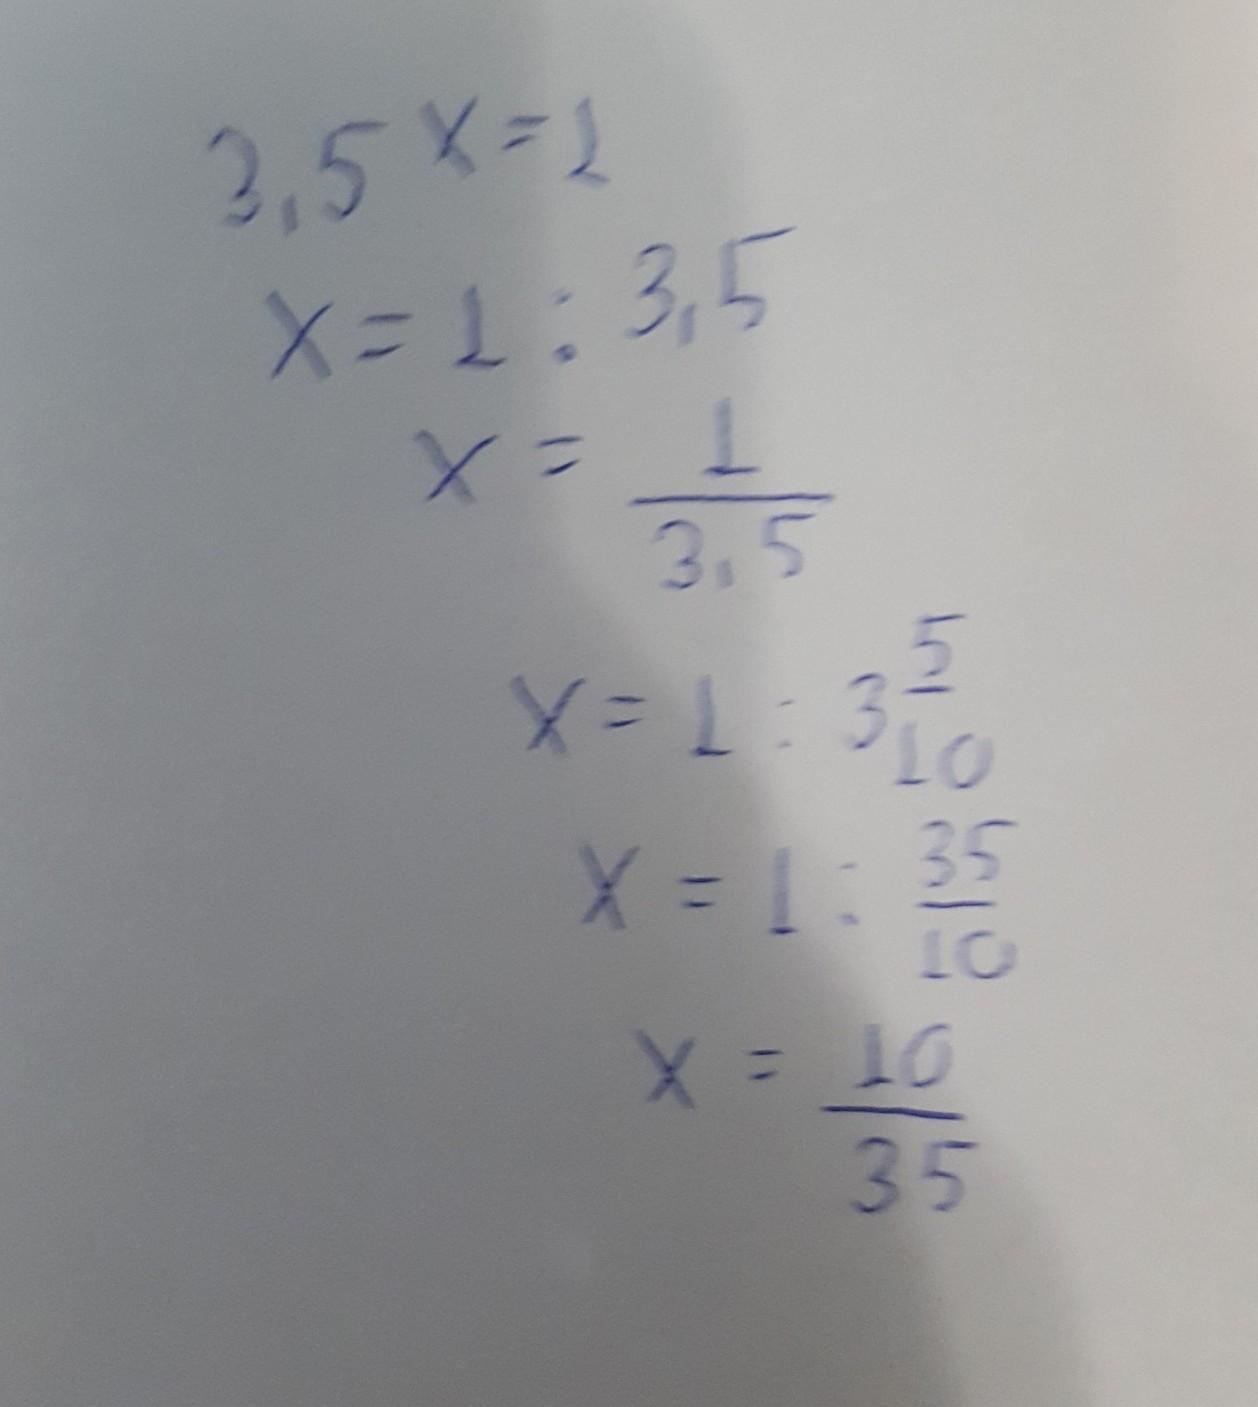 3,5 x = 1
x = 1 : 3,5
x = 1/3,5
x = 1 : 3 5/10
x = 1 : 35/10
x = 10/35